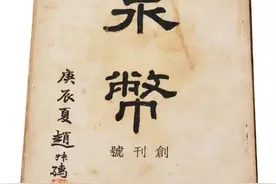 泉幣
創刊號
庚辰夏 趙叔孺